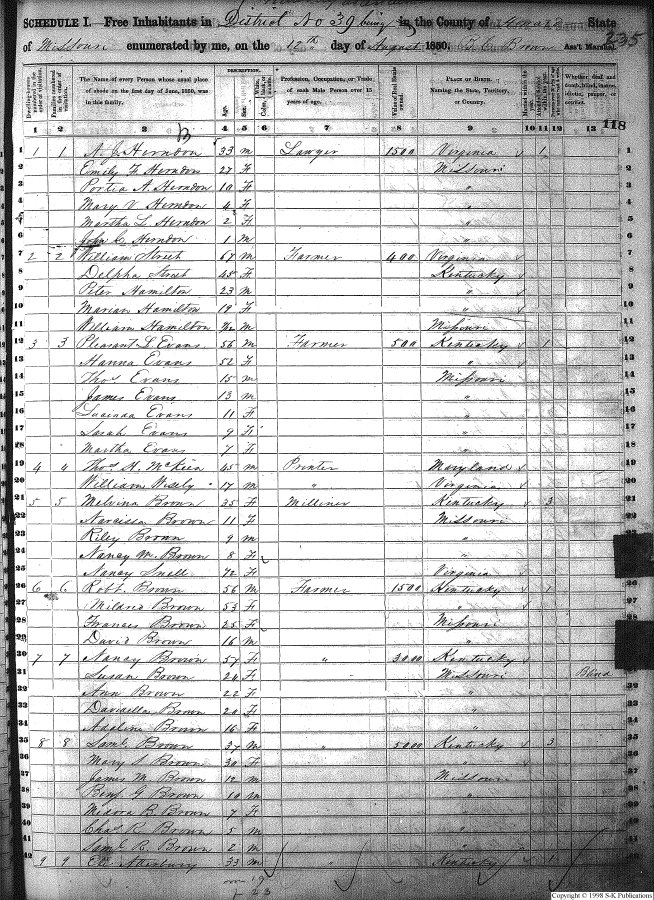 SCHEDULE I. Free Inhabitants in District No 39 being in the County of State
of Missouri enumerated by me, on the 12th day of August 1850. Brown Ass't Marshal. 235
Dwelling-houses numbered in the order of visitation.
Families numbered in the order of visitation.
The Name of every Person whose usual place of abode on the first day of June, 1850, was in this family.
DESCRIPTION.
Age.
Sex.
White, black, or mulatto.
Profession, Occupation, or Trade of each Male Person over 15 years of age.
Value of Real Estate owned.
PLACE OF BIRTH. Naming the State, Territory, or Country.
Married within the year.
Whether deaf and dumb, blind, insane, idiotic, pauper, or convict.
1 2 3 4 5 6 7 8 9 10 11 12 13
B 118
1 1 1 A. J. Herndon 33 m Lawyer 1500 Virginia 1 1
2 Emily F. Herndon 27 F Missouri 2
3 Portia A. Herndon 10 F " 3
4 Mary V Herndon 4 F " 4
5 Martha L. Herndon 2 F " 5
6 John C Herndon 1 m " 6
7 2 2 William Street 67 m Farmer 400 Virginia 7
8 Delpha Street 45 F Kentucky 8
9 Peter Hamilton 23 m " 9
10 Marian Hamilton 19 F " 10
11 William Hamilton m Missouri 11
12 3 3 Pleasant L Evans 56 m Farmer 500 Kentucky 1 12
13 Hanna Evans 52 F " 13
14 Thos Evans 15 m Missouri 14
15 James Evans 13 m " 15
16 Lucinda Evans 11 F " 16
17 Sarah Evans 9 F " 17
18 Martha Evans 7 F " 18
19 4 4 Thos H. McKien 45 m Printer Maryland 19
20 William Wisely 17 m " Virginia 20
21 5 5 Melvina Brown 35 F Milliner Kentucky 3 21
22 Narcissa Brown 11 F Missouri 22
23 Riley Brown 9 m "
24 Nancy M. Brown 8 F "
25 Nancy Snell 72 F Virginia
26 6 6 Robt. Brown 56 m Farmer 1500 Kentucky 1 26
27 Mildred Brown 53 F " 27
28 Frances Brown 25 F Missouri 28
29 David Brown 16 m "
30 7 7 Nancy Brown 57 F " 3000 Kentucky
31 Susan Brown 24 F Missouri Blind 31
32 Ann Brown 22 F " 32
33 Davidella Brown 20 F " 33
34 Adeline Brown 16 F " 34
35 8 8 Saml Brown 37 m " 5000 Kentucky 3 35
36 Mary S Brown 30 F " 36
37 James M Brown 12 m Missouri 37
38 Benj. G Brown 10 m " 38
39 Medora B. Brown 7 F " 39
40 Chas R Brown 5 m " 40
41 Saml R. Brown 2 m " 41
42 9 9 Atterbury 33 m " Kentucky 1 42
m 19
F 23
Copyright © 1998 S-K Publications